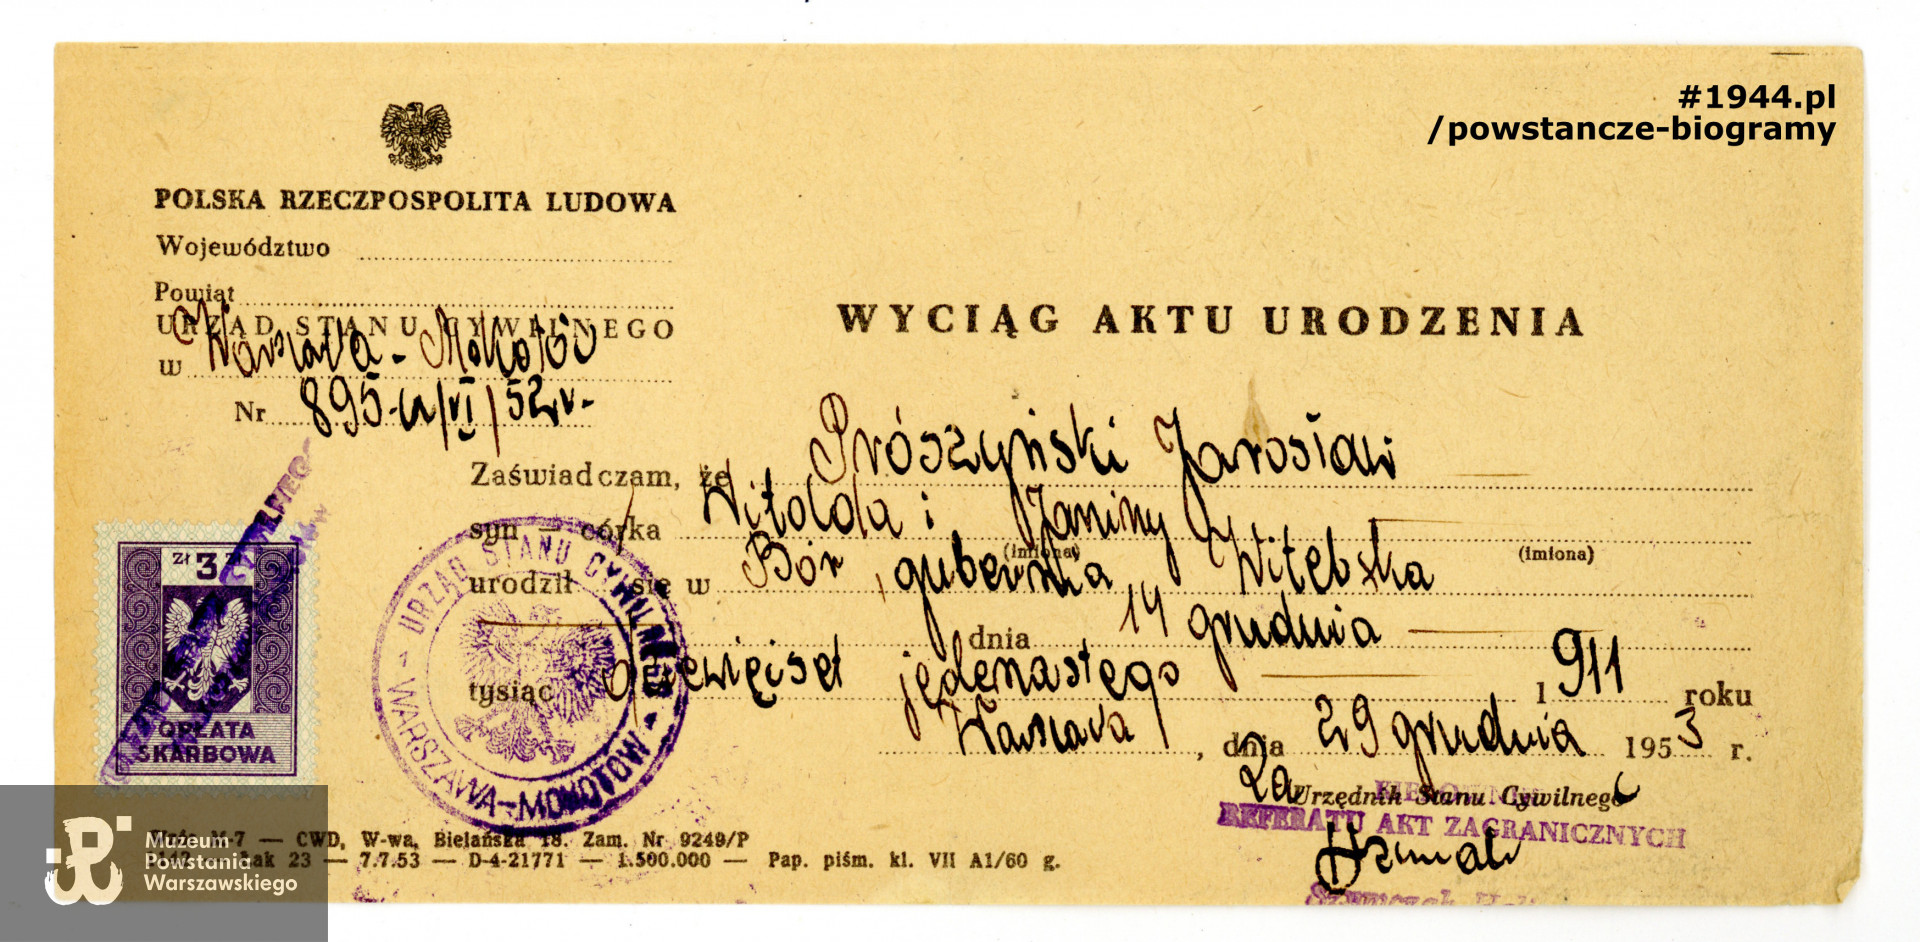 #1944.pl
/powstancze-biogramy
POLSKA RZECZPOSPOLITA LUDOWA
Województwo
Powiat
URZĄD STANU CYWILNEGO
w Warszawa - Mokotów
Nr 895
WYCIĄG AKTU URODZENIA
Zaświadczam, że Prószyński Jarosław
syn — córka Witolda i Janiny
(imiona) (imiona)
urodził się w Bór, gubernia Witebska
dnia 14 grudnia
tysiąc dziewięset jedenastego 1911 roku
Warszawa, dnia 29 grudnia 1953 r.
Za Urzędnik Stanu Cywilnego
KIEROWNIK
REFERATU AKT ZAGRANICZNYCH
Szymczak
zł 3
OPŁATA
SKARBOWA
URZĄD STANU CYWILNEGO
WARSZAWA-MOKOTÓW
M-7 — CWD, W-wa, Bielańska 18. Zam. Nr 9249/P
23 — 7.7.53 — D-4-21771 — 1.500.000 — Pap. piśm. kl. VII A1/60 g.
Muzeum
Powstania
Warszawskiego